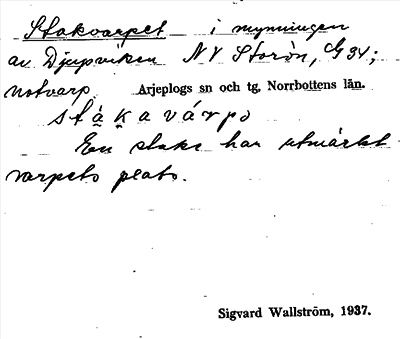 Stakvarpet i mynningen
av Djupviken NV Storön, G 34;
notvarp. Arjeplogs sn och tg, Norrbottens län.
stạ́ḳavárpo
En stake har utmärkt
varpets plats.
Sigvard Wallström, 1937.